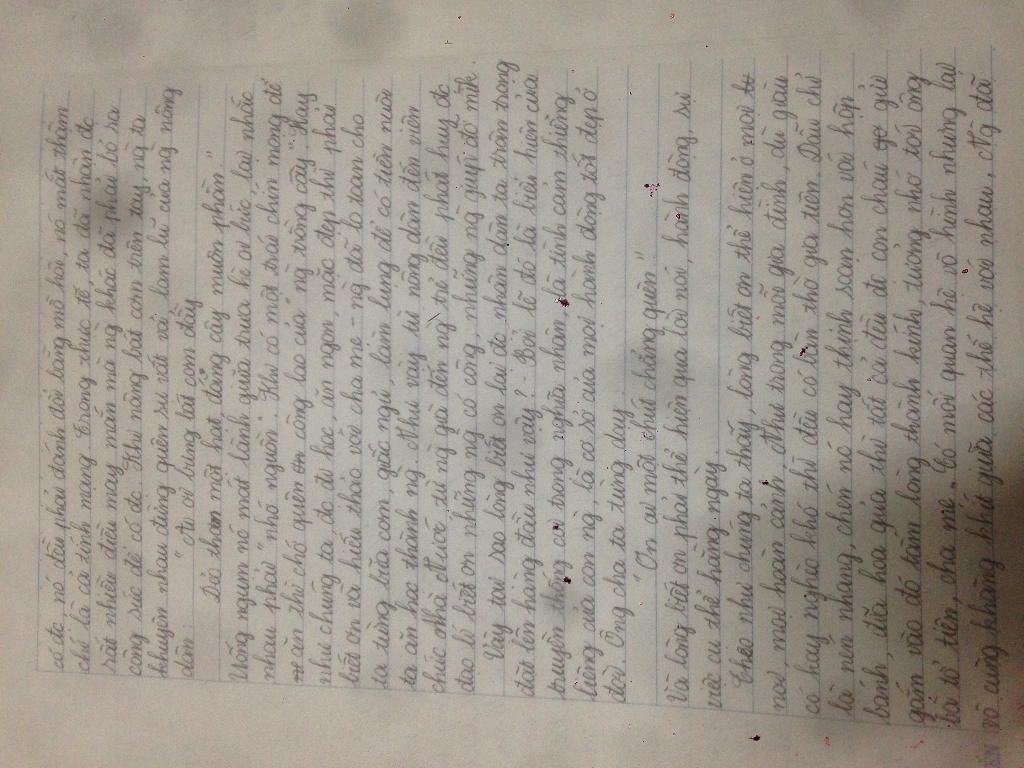 có đc nó dẫu phải đánh đổi bằng mồ hôi, nó mất thầm
chí là cả tính mạng. Trong thực tế, ta đã nhận đc
rất nhiều điều may mắn mà ng khác đã phải bỏ ra
công sức để có đc. Khi nâng bát cơm trên tay, ng ta
khuyên nhau đừng quên sự vất vả, lam lũ của ng nông
dân:
"Ai ơi bưng bát cơm đầy
Dẻo thơm một hạt đắng cay muôn phần."
Uống ngụm nó mát lành giữa trưa hè oi bức, lại nhắc
nhau phải "nhớ nguồn". Khi có một trái chín mọng để
ăn thì chớ quên công lao của "ng trồng cây". Hay
như chúng ta, đc đi học, ăn ngon, mặc đẹp thì phải
biết ơn và hiếu thảo với cha mẹ - ng đã lo toan cho
ta từng bữa cơm, giấc ngủ, làm lụng để có tiền nuôi
ta ăn học thành ng. Như vậy từ nông dân đến viên
chức Nhà Nước, từ ng già đến ng trẻ đều phát huy đc
đạo lí biết ơn những ng có công, những ng giúp đỡ mik.
Vậy tại sao lòng biết ơn lại đc nhân dân ta trân trọng
đặt lên hàng đầu như vậy? - Bởi lẽ đó là biểu hiện của
truyền thống coi trọng nghĩa nhân, là tình cảm thiêng
liêng của con ng, là cơ sở của mọi hành động tốt đẹp ở
đời. Ông cha ta từng dạy:
"Ơn ai một chút chẳng quên"
Và lòng biết ơn phải thể hiện qua lời nói, hành động, sự
việc cụ thể hàng ngày.
Theo như chúng ta thấy, lòng biết ơn thể hiện ở mọi
nơi, mọi hoàn cảnh. Như trong mỗi gia đình, dù giàu
có hay nghèo khó thì đều có bàn thờ gia tiên. Dẫu chỉ
là nén nhang, chén nó hay thịnh soạn hơn với hộp
bánh, đĩa hoa quả thì tất cả đều đc con cháu gửi
gắm vào đó tấm lòng thành kính tưởng nhớ tới ông
bà tổ tiên, cha mẹ. Có mối quan hệ vô hình nhưng lại
vô cùng khăng khít giữa các thế hệ với nhau. Ng đã